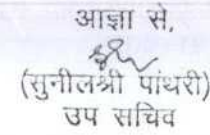 आज्ञा से,
(सुनीलश्री पांथरी)
उप सचिव